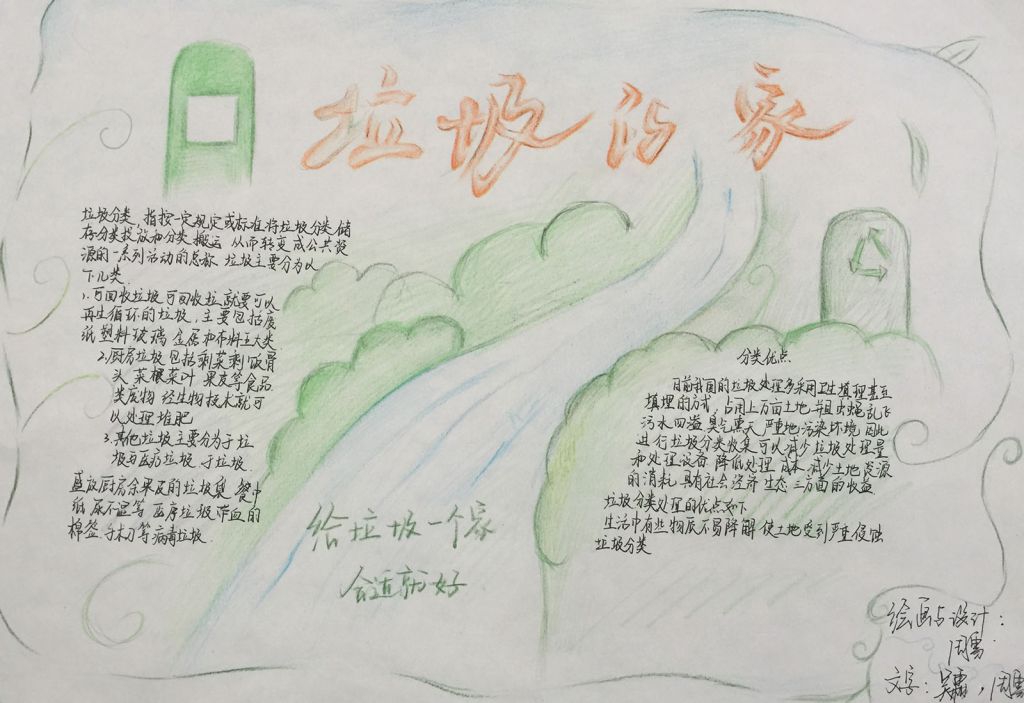 垃圾的家
垃圾分类 指按一定规定或标准将垃圾分类 储
存分类投放和分类搬运 从而转变成公共资
源的一系列活动的总称 垃圾主要分为以
下几类
1.可回收垃圾 可回收垃 就要可以
再生循环的垃圾,主要包括废
纸 塑料 玻璃 金属和布料五大类
2.厨房垃圾 包括剩菜剩饭骨
头 菜根菜叶 果皮等食品
类废物 经生物技术就可
以处理堆肥
3.其他垃圾 主要分为干垃
圾与医疗垃圾 干垃圾
盛放厨房余果皮的垃圾袋 餐巾
纸 尿不湿等 医疗垃圾 带血的
棉签 手术刀等病毒垃圾
给垃圾一个家
合适就好
分类优点
目前我国的垃圾处理多采用卫生填埋甚至
填埋的方式 占用上万亩土地 并且虫蝇乱飞
污水四溢 臭气熏天 严重地污染环境 因此
进行垃圾分类收集可以减少垃圾处理量
和处理设备 降低处理成本 减少土地资源
的消耗 具有社会 经济 生态 三方面的收益
垃圾分类处理的优点如下
生活中有些物质不易降解 使土地受到严重侵蚀
垃圾分类
绘画与设计:
周雪
文字:吴,周雪